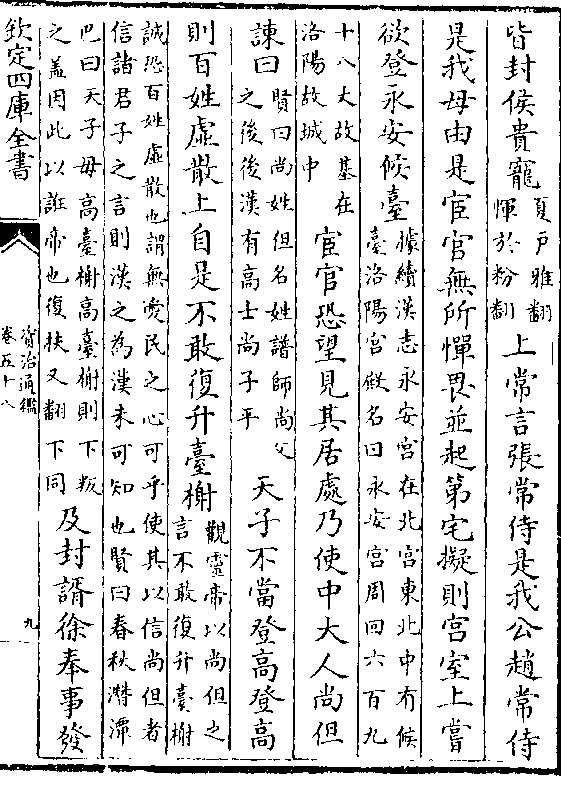 皆封侯貴寵
夏戶雅翻
惲於粉翻
上常言張常侍是我公趙常侍
是我母由是宦官無所憚畏並起第宅擬則宮室上嘗
欲登永安候臺
據續漢志永安宮在北宮東北中有候
臺洛陽宮殿名曰永安宮周回六百九
十八丈故基在
洛陽故城中
宦官恐望見其居處乃使中大人尚但
諫曰
賢曰尚姓但名姓譜師尚父
之後後漢有高士尚子平
天子不當登高登高
則百姓虛散上自是不敢復升臺榭
觀靈帝以尚但之
言不敢復升臺榭
誠恐百姓虛散也謂無愛民之心可乎使其以信尚但者
信諸君子之言則漢之為漢未可知也賢曰春秋潛潭
巴曰天子毋高臺榭高臺榭則下叛
之盖因此以誑帝也復扶又翻下同
及封諝徐奉事發
欽定四庫全書
資治通鑑
卷五十八
九